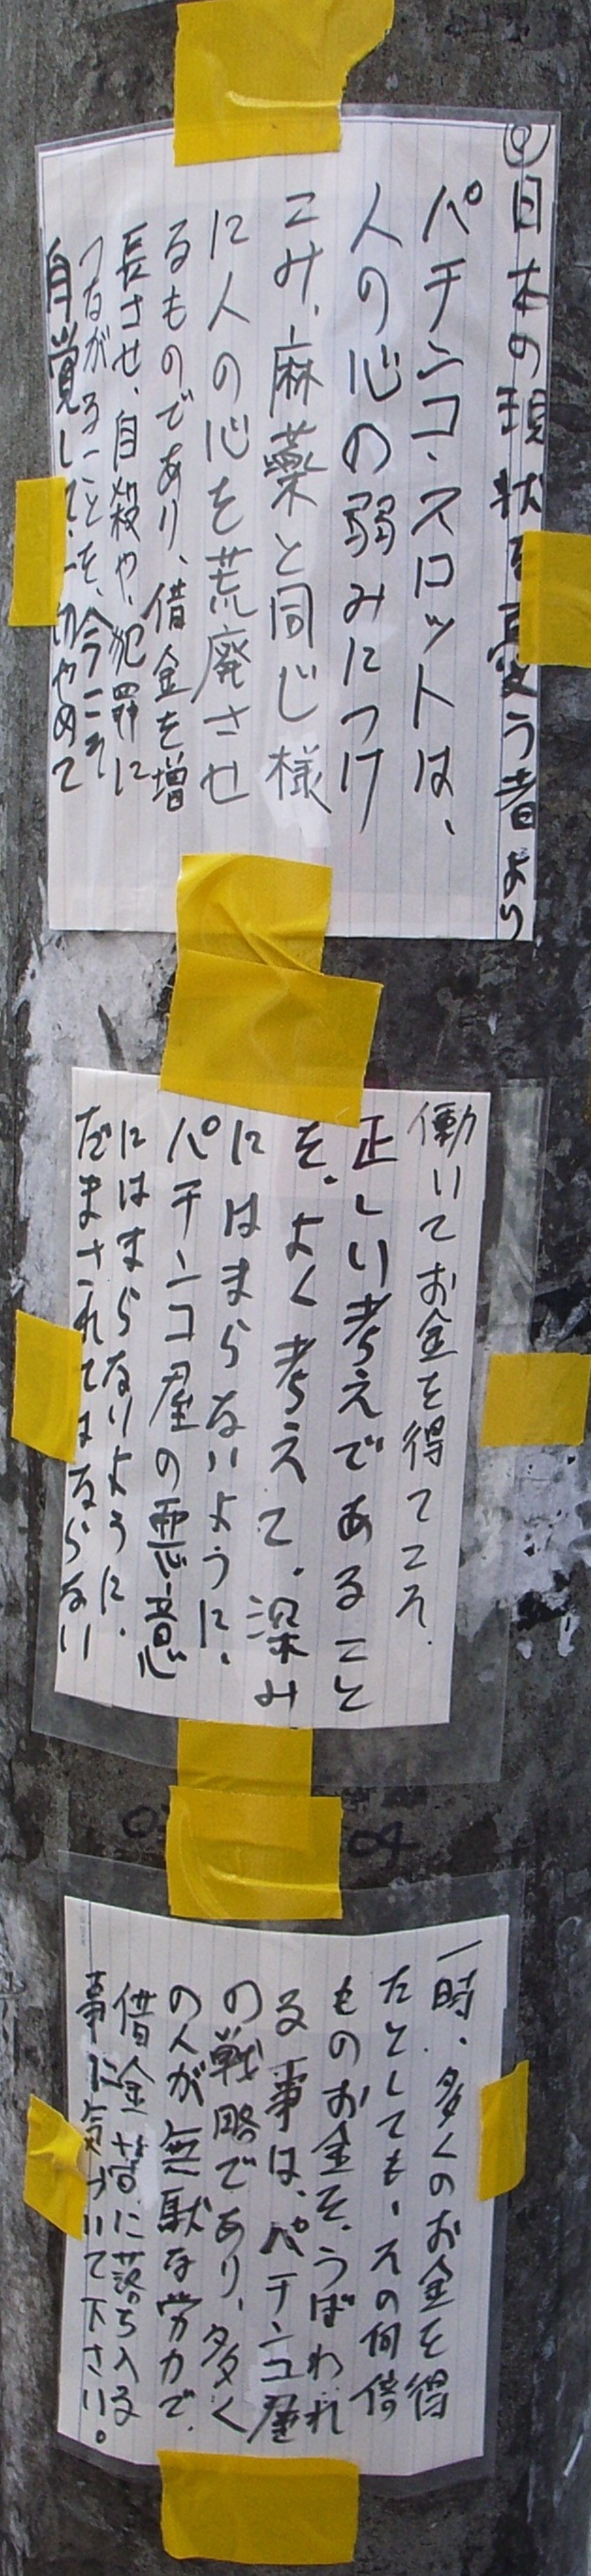 日本の現状を憂う者より
パチンコ・スロットは、
人の心の弱みにつけ
こみ、麻薬と同じ様
に人の心を荒廃させ
るものであり、借金を増
長させ、自殺や、犯罪に
つながることを、今こそ
自覚して、一切やめて
働いてお金を得てこそ、
正しい考えであること
を、よく考えて、深み
にはまらないように、
パチンコ屋の悪意
にはまらないように、
だまされてはならない
一時、多くのお金を得
たとしても、その何倍
ものお金を、うばわれ
る事は、パチンコ屋
の戦略であり、多く
の人が無駄な労力で、
借金苦に落ち入る
事に気づいて下さい。
04